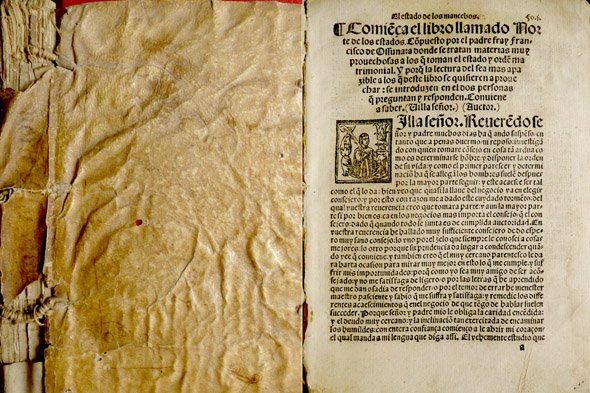 El estado de los mancebos. Fo.j.
¶ Comiẽça el libro llamado Nor
te de los estados. Cõpuesto por el padre fray Fran
cisco de Ossunara donde se tratan materias muy
prouechosas a los q̃ toman el estado y ordẽ ma
trimonial. Y porq̃ la lectura del sea mas apa
zible a los q̃ deste libro se quisieren aproue
char: se introduzen en el dos personas
q̃ preguntan y responden. Conuiene
a saber. (Uilla señor.) (Auctor.)
Uilla señor. Reuerẽdo se
ñor y padre muchos dias ha q̃ ando suspẽso: en
tanto que a penas duermo ni reposo: inuestigã
do con quien tomare cõsejo en cosa tã ardua co
mo es determinarse hõbre: y disponer la orden
de su vida: y como el primer parescer y determi
naciõ ha q̃ se allega los hombres suele despues
por la mayor parte seguir: y este acaesce ser tal
como el q̃ lo da: bien veo que quasi la llaue del negocio va en elegir
consejero: y por esto con razon me a dado este cuydado tormẽto: del
qual vuestra reuerencia creo que tomara parte: y aun la mayor par
te si por bien
en los negocios mas importa el consejo: q̃ el con
sejero: dado q̃ quando todo se junta es de cumplida auctoridad. En
vuestra reuerencia he hallado muy sufficiente consejero de do espe
ro muy sano consejo: lo vno por el zelo que siempre le conosci a cosar
mejores: lo otro porque su prudencia da lugar a condescender quã
do vee q̃ conuiene: y tambien creo q̃ el muy cercano parentesco le da
ra harta ocasion para mirar muy mejor en esto lo q̃ me cumple: y suf
frir mis importunidades: porq̃ como yo sea muy amigo de ser acõ
sejado: y no me satisfaga de ligero: o por las letras q̃ he aprendido
que me dan osadia de responder: o por el temor de errar he menester
maestro pasciente y sabio q̃ me suffra y satisfaga: y remedie los diffe
rentes acaescimientos q̃ en el negocio de que tẽgo de hablar suelen
succeder. Porque señor y padre mio le obliga la caridad encẽdida:
y el deudo muy cercano: y la inclinaciõ tan exercitada de encaminar
los humildes: con entera confiança comienço a le abrir mi coraçon/
el qual manda a mi lengua que diga assi. El vehemente estudio que
a